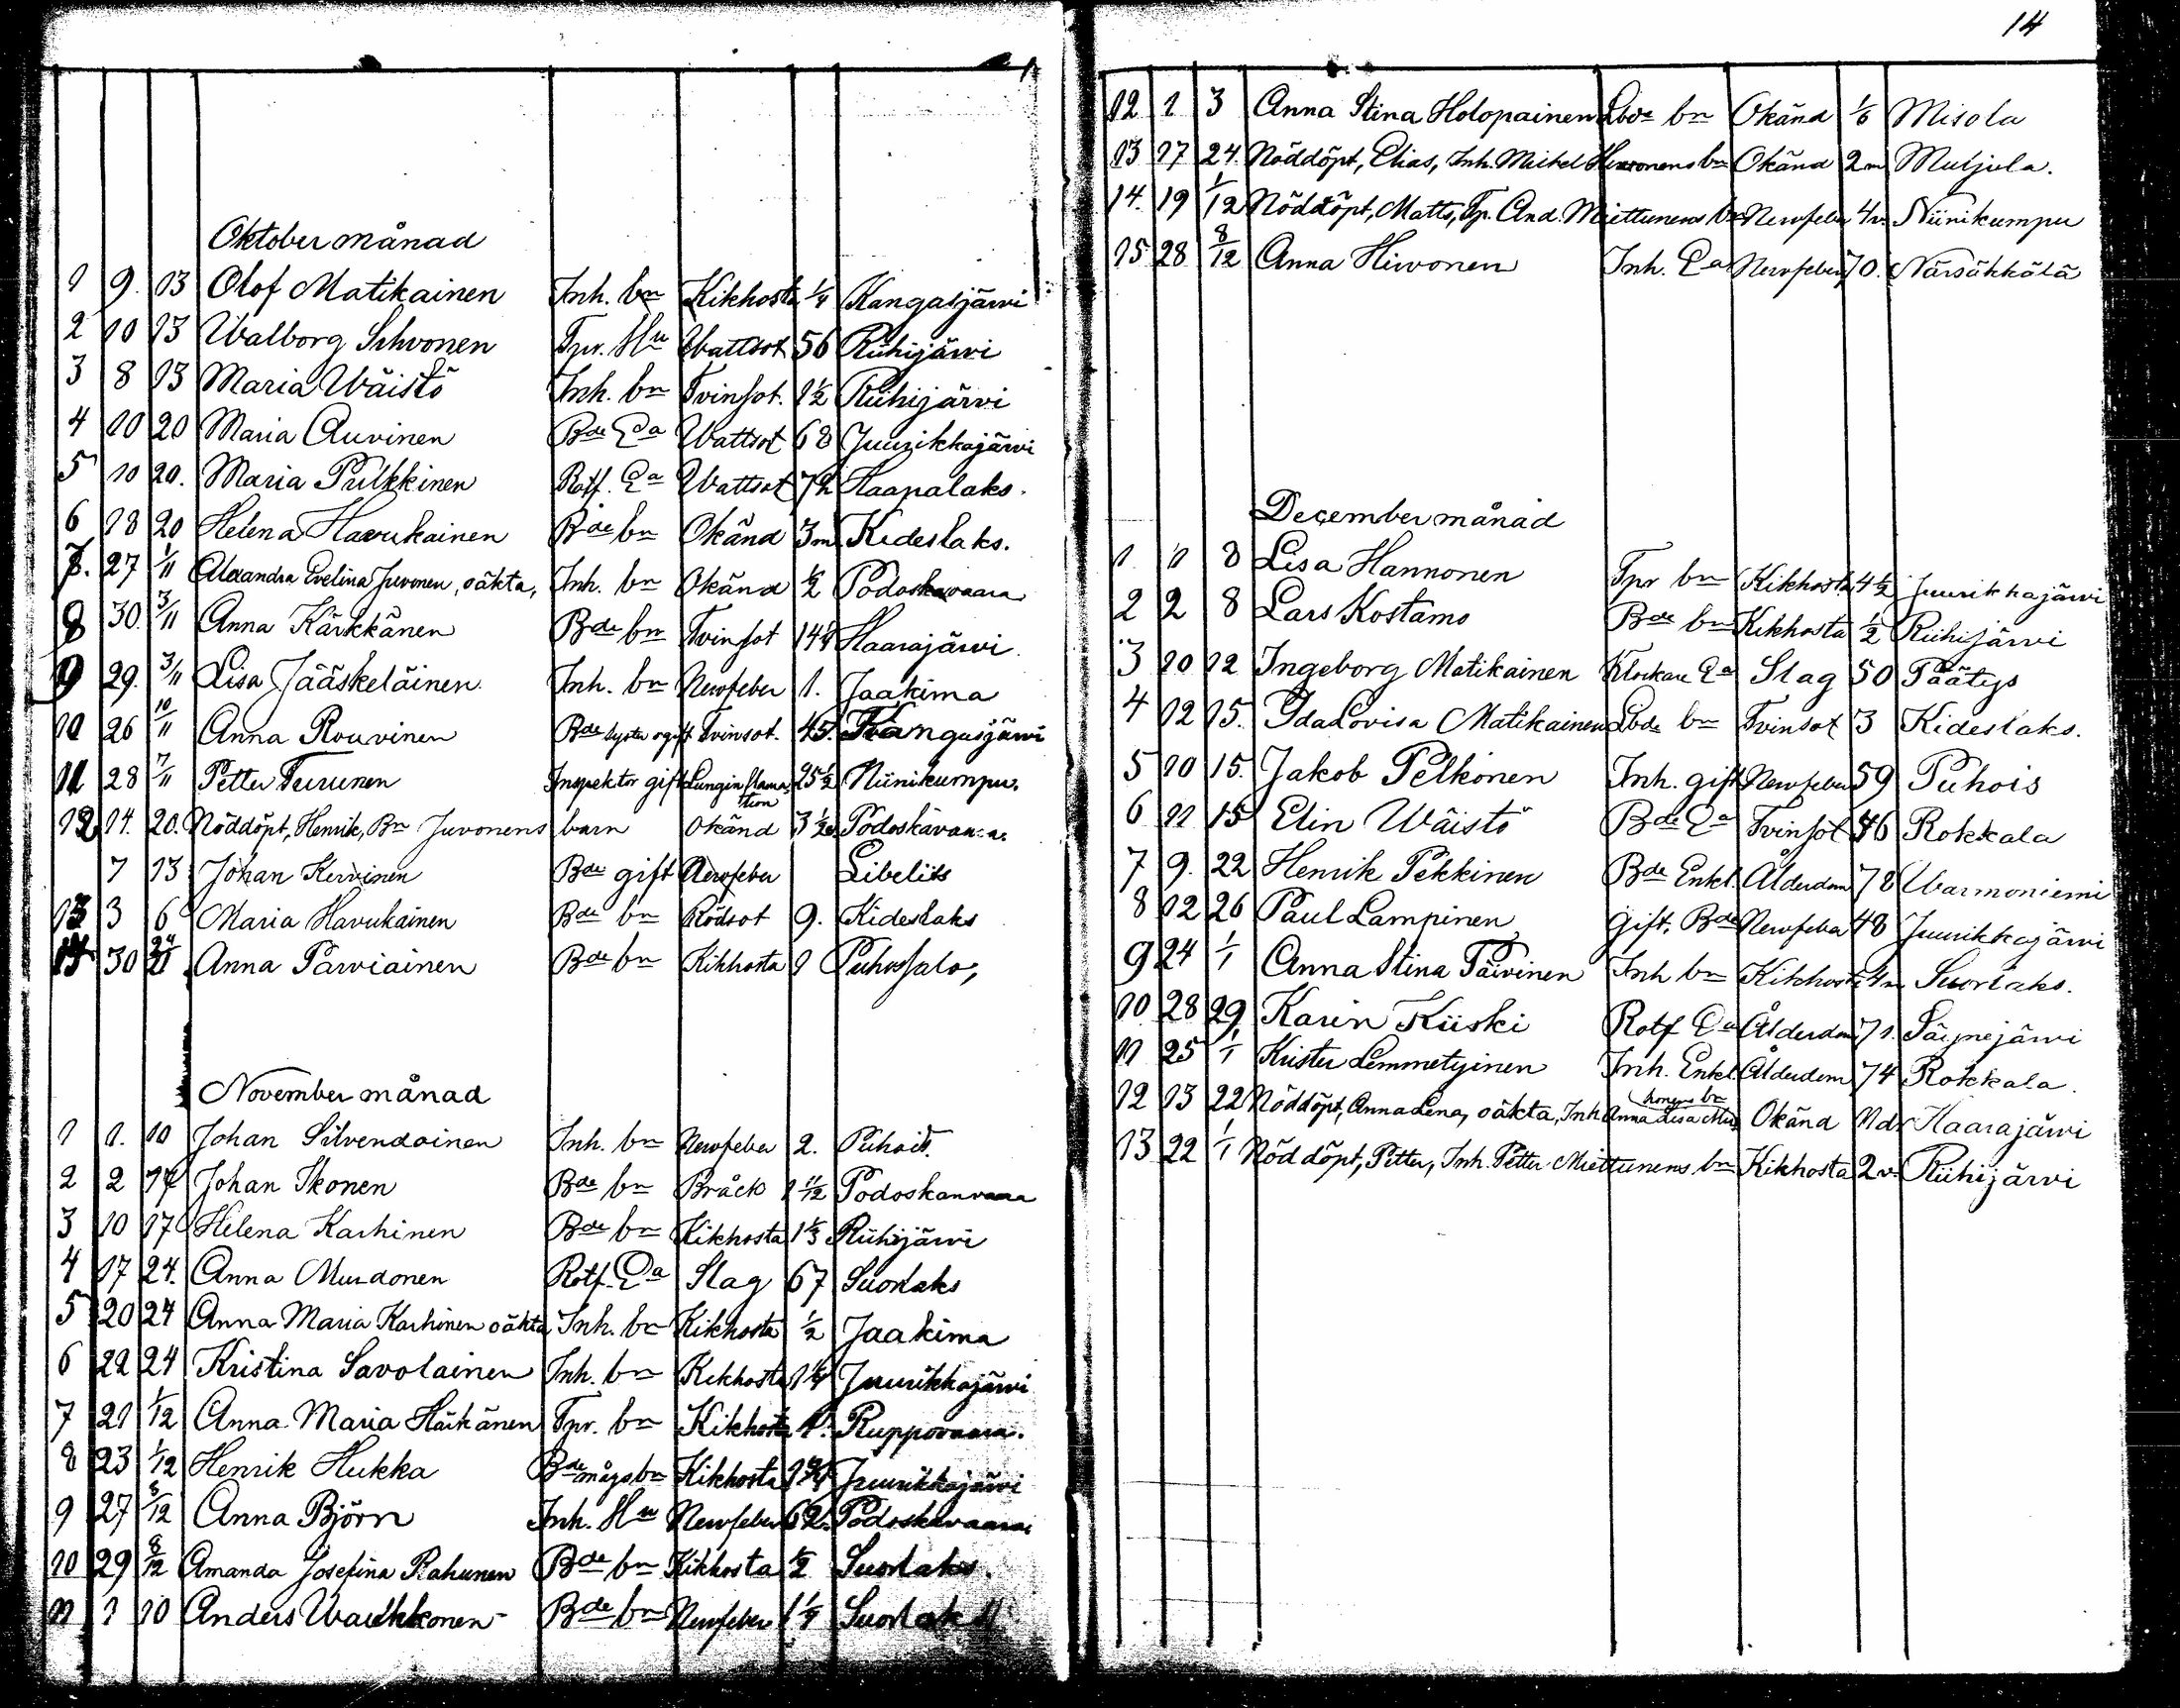 Oktober månad
1 9. 13 Olof Matikainen Inh. bn Kikhosta 1/4 Kangasjärvi
2 10 13 Walborg Sihvonen Tpr. Hu Wattsot 56 Riihijärvi
3 8 13 Maria Wäistö Inh. bn Tvinsot. 1 1/2 Riihijärvi
4 10 20 Maria Auvinen Bde Ea Wattsot 68 Juurikkajärvi
5 10 20. Maria Pulkkinen Rotf. Ea Wattsot 72 Haapalaks.
6 18 20 Helena Havukainen Bde bn Okänd 3m Kideslaks.
7. 27 1/11 Alexandra Evelina Juvonen, oäkta, Inh. bn Okänd 1/2 Podoskavaara
8 30 3/11 Anna Kärkkänen Bde bn Tvinsot 14 Haarajärvi
9 29. 3/11 Lisa Jääskeläinen Inh. bn Nervfeber 1. Jaakima
10 26 10/11 Anna Rouvinen Bde syster ogift Tvinsot. 45. Kangasjärvi
11 28 7/11 Petter Turunen Inspektor gift Lunginflamation 25 1/2 Niinikumpu.
12 14. 20. Nöddöpt, Henrik, Bn Juvonens barn okänd 3 Podoskavaara.
7 13 Johan Kervinen Bde gift Nervfeber Libelits
13 3 6 Maria Havukainen Bde bn Rödsot 9. Kideslaks
30 Anna Parviainen Bde bn Kikhosta 1 Puhossalo,
November månad
1 1. 10 Johan Silvendoinen Inh. bn Nervfeber 2. Puhois.
2 2 17 Johan Ikonen Bde bn Bråck 1 11/12 Podoskanvaara
3 10 17 Helena Karhinen Bde bn Kikhosta 1 1/3 Riihijärvi
4 17 24. Anna Mustonen Rotf. Ea Slag 67 Suorlaks
5 20 24 Anna Maria Karhinen oäkta Inh. bn Kikhosta 1/2 Jaakima
6 22 24 Kristina Savolainen Inh. bn Kikhosta 1 1/4 Juurikkajärvi
7 21 1/12 Anna Maria Härkänen Tpr. bn Kikhosta 1. Ruppovaara.
8 23 1/12 Henrik Hukka Bde mågs bn Kikhosta Juurikkajärvi
9 27 8/12 Anna Björn Inh. Hu Nervfeber 62. Podoskavaara
10 29 8/12 Amanda Josefina Rahunen Bde bn Kikhosta 1/2 Suorlaks.
11 1 10 Anders Waukkonen Bde bn Nervfeber 1 1/4 Suorlak
14
12 1 3 Anna Stina Holopainen Lbde bn Okänd 1/6 Misola
13 17 24. Nöddöpt, Elias, Inh. Mickel bn Okänd 2m Muljula.
14. 19 1/12 Nöddöpt, Matts, Tp. And. Miettunens bn Nervfeber 4v. Niinikumpu
15 28 8/12 Anna Hirvonen Inh. Ea Nervfeber 70. Närsäkkälä
December månad
1 1 8 Lisa Hannonen Tpr bn Kikhosta 4 1/2 Juurikkajärvi
2 2 8 Lars Kostamo Bde bn Kikhosta 1/2 Riihijärvi
3 10 12 Ingeborg Matikainen Klockare Ea Slag 50 Päätys
4 12 15. Ida Lovisa Matikainen Lbde bn Tvinsot 3 Kideslaks.
5 10 15. Jakob Pelkonen Inh. gift Nervfeber 59 Puhois
6 11 15 Elin Wäistö Bde Ea Tvinsot 46 Rokkala
7 9. 22 Henrik Pekkinen Bde Enkl. Ålderdom 78 Warmoniemi
8 12 26 Paul Lampinen Gift. Bde Nervfeber 48 Juurikkajärvi
9 24 1/1 Anna Stina Päivinen Inh bn Kikhosta 4m Suorlaks.
10 28 29 Karin Kiiski Rotf Ea Ålderdom 71. Särpejärvi
11 25 1/1 Krister Lemmetyinen Inh. Enkl. Ålderdom 74 Rokkala.
12 13 22 Nöddöpt, Anna Lena, oäkta, Inh Anna Lisa Okänd 11d. Haarajärvi
13 22 1/1 Nöddöpt, Petter, Inh. Petter Miettunens bn Kikhosta 2v. Riihijärvi